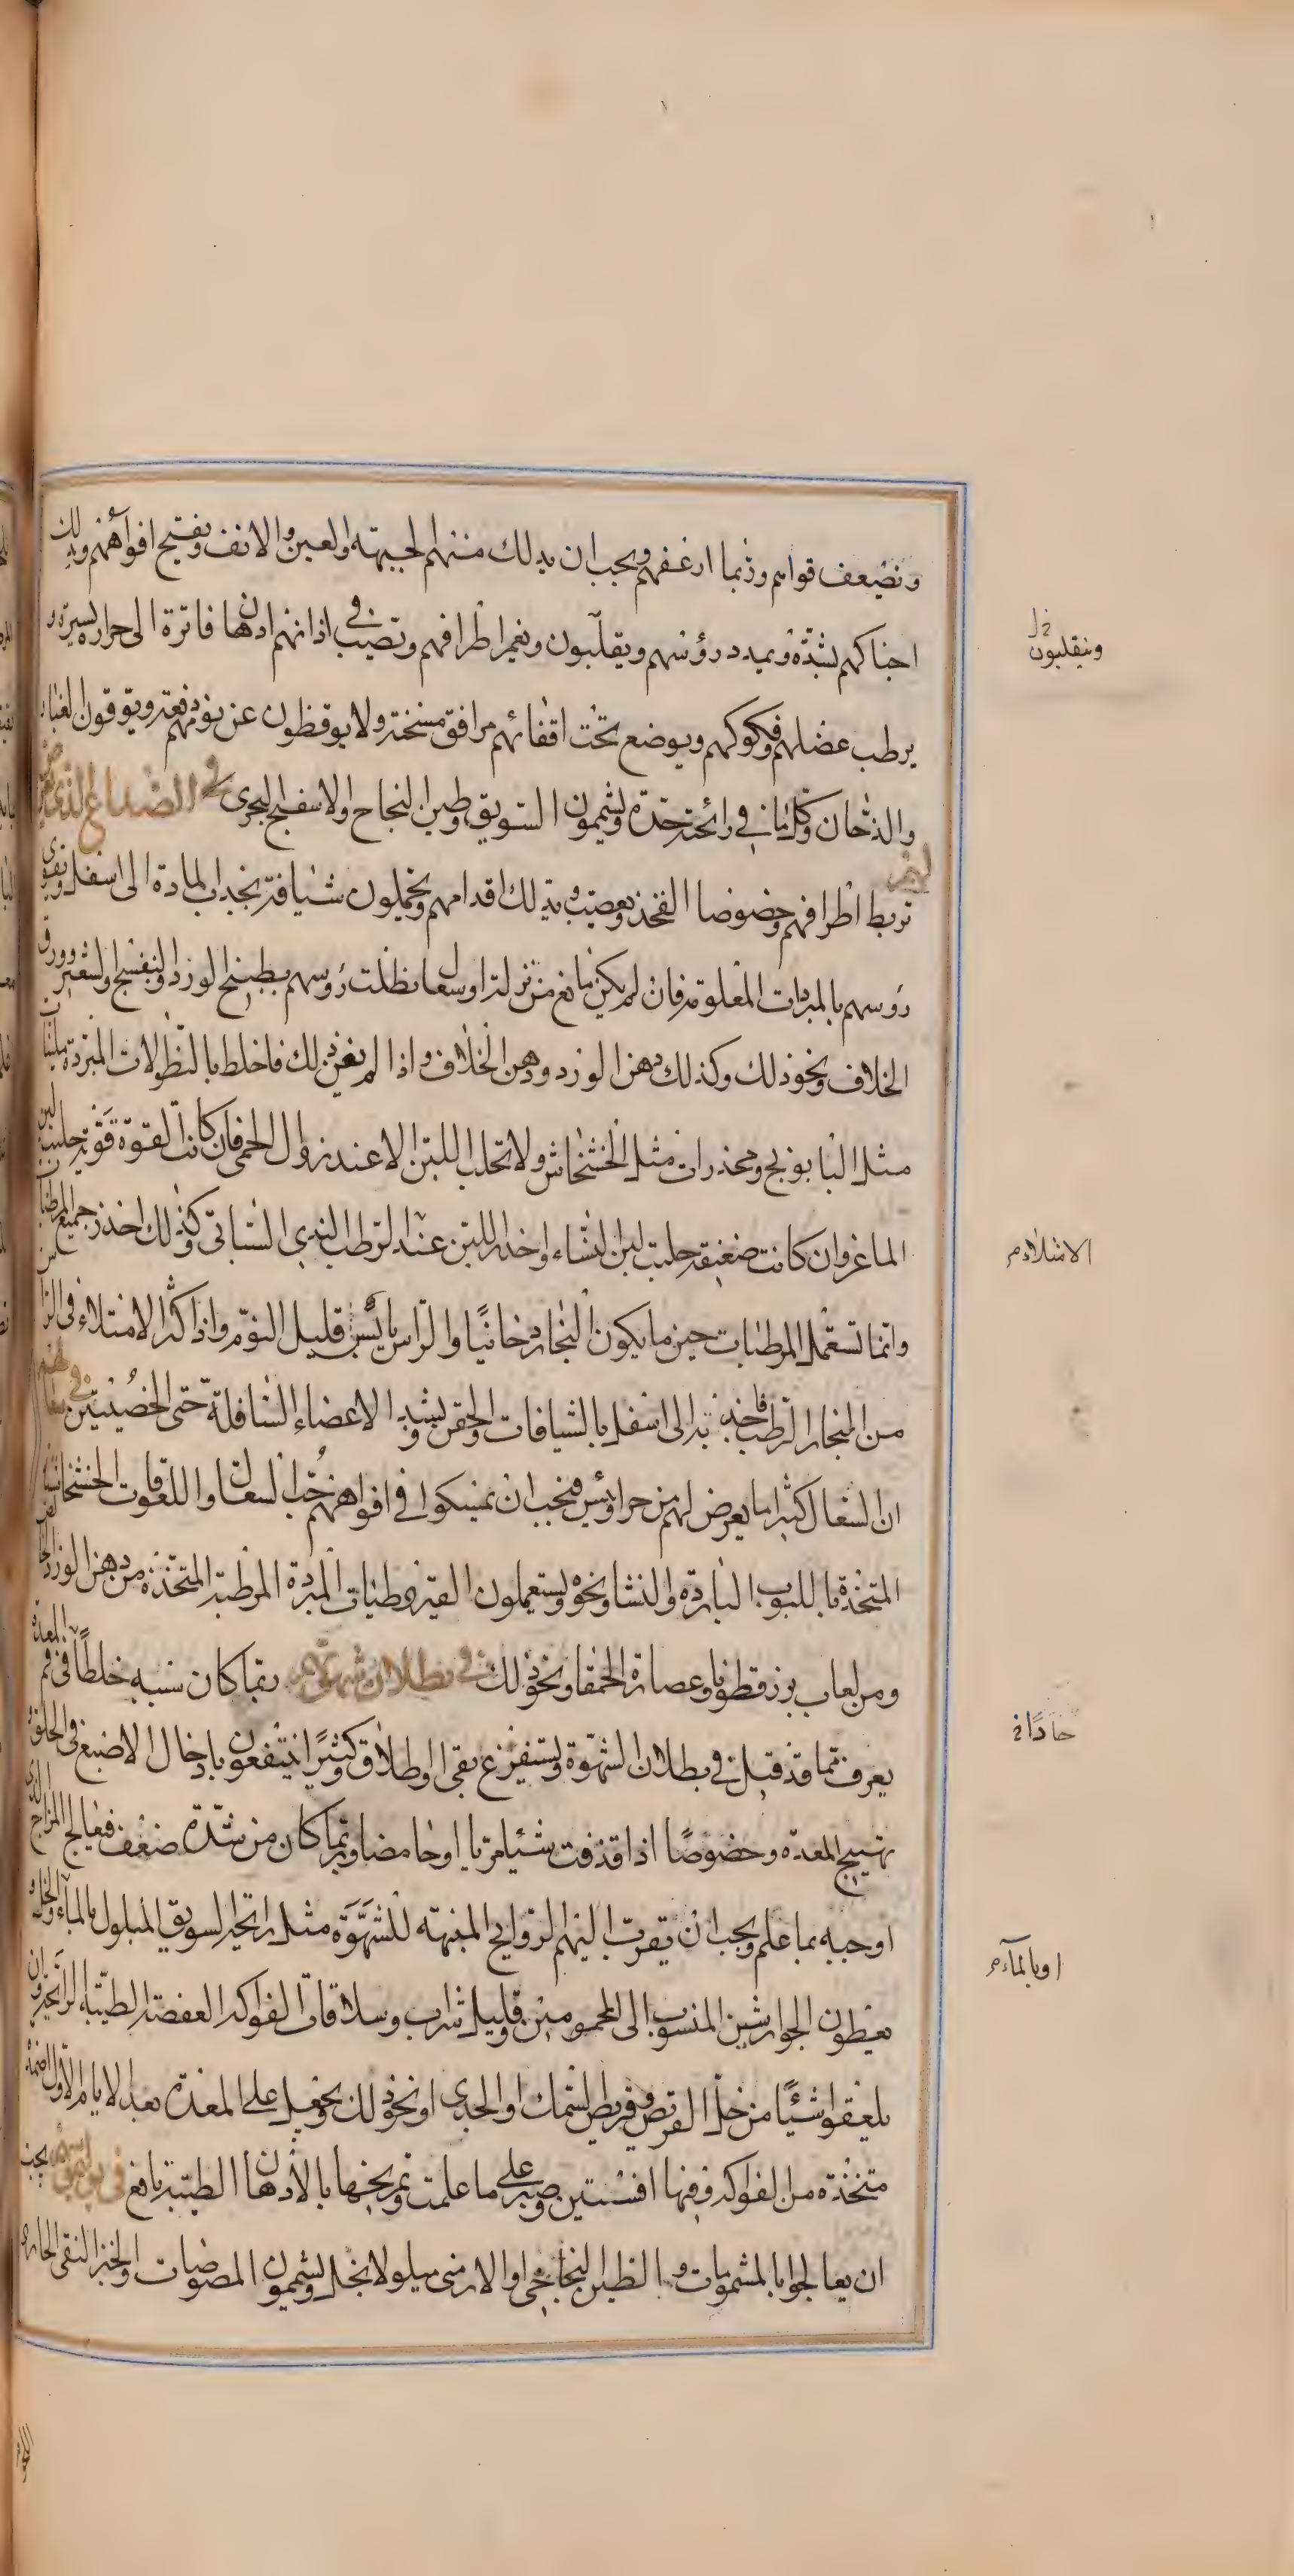 وتضعف قواهم وربما ارعفهم ويجب ان يدلك منهم الجبهة والعين والانف وتفتح افواههم ويدلك
احناكهم بشدة ويمدد رؤسهم ويقلبون وتغمر اطرافهم وتصب في اذانهم ادهان فاترة الى حرارة يسيرة و
يرطب عضلهم وفكوكهم ويوضع تحت اقفائهم مرافق مسخنة ولا يوقظون عن نومهم دفعة ويوقون الغبار
والدخان وكل ما في رائحته حدة ويشمون السويق وطين النجاح والاسفنج البحرى في الصداع الذى يعرض
لهم
تربط اطرافهم وخصوصا الفخذ بعصب وتدلك اقدامهم ويحملون شيافة تجذب المادة الى اسفل وتقوى
رؤسهم بالمبردات المعلومة فان لم يكن مانع من نزلة او سعال نطلت رؤسهم بطبيخ الورد والبنفسج والشعير وورق
الخلاف ونحو ذلك وكذلك دهن الورد ودهن الخلاف واذا لم يغن ذلك فاخلط بالنطولات المبردة ملينات
مثل البابونج ومخدرات مثل الخشخاش ولا تحلب اللبن الا عند زوال الحمى فان كانت القوة قوية حلبت لبن
الماعز وان كانت ضعيفة حلبت لبن النساء واحذر اللبن عند الرطب الندى السباتى وكذلك احذر جميع المرطبات
وانما تستعمل المرطبات حين ما يكون البخار دخانيا والراس يابس قليل النوم واذا كثر الامتلاء فى الراس
من البخار الرطب فاجذبه الى اسفل بالشيافات والحقن وبشد الاعضاء السافلة حتى الخصيتين في سعالهم
ان السعال كثيرا ما يعرض لهم من حر او يبس فيجب ان يمسكوا في افواههم حب السعال واللعوقات الخشخاشية
المتخذة بالبوب الباردة والنشا ونحوه ويستعملون القيروطيات المبردة المرطبة المتخذة من دهن الورد
ومن لعاب بزر قطونا وعصارة الحمقا ونحو ذلك في بطلان شهوتهم ربما كان سببه خلطا في فم المعدة
يعرف مما قد قيل في بطلان الشهوة ويستفرغ بقى او اطلاق وكثيرا ينتفعون بادخال الاصبع في الحلق و
تهييج المعدة وخصوصا اذا قذفت شيئا مريا او حامضا وربما كان من شدة ضعف فيعالج المزاج الذى
اوجبه بما علم ويجب ان يقرب اليهم الروايح المنبهة للشهوة مثل رائحة السويق المبلول بالماء والخل و
يعطون الجوارشين المنسوب الى المحمومين وقليل شراب وسلاقات الفواكه العفصة الطيبة الرائحة وان
يلعقوا شيئا من خل القريص وقريص السمك او الجدى او نحو ذلك ويجعل على المعدة بعد الايام الاول اضمدة
متخذة من الفواكه وفيها افسنتين وصبر على ما علمت وتمريخها بالادهان الطيبة نافع في بوليموس يجب
ان يعالجوا بالمشمومات والطين النجاحى او الارمنى مبلولا بخل ويشمون المصوصات والخبز النقى الحار و
وينقلبون خ ل
الامتلاء م
حادا خ
او بالماء م